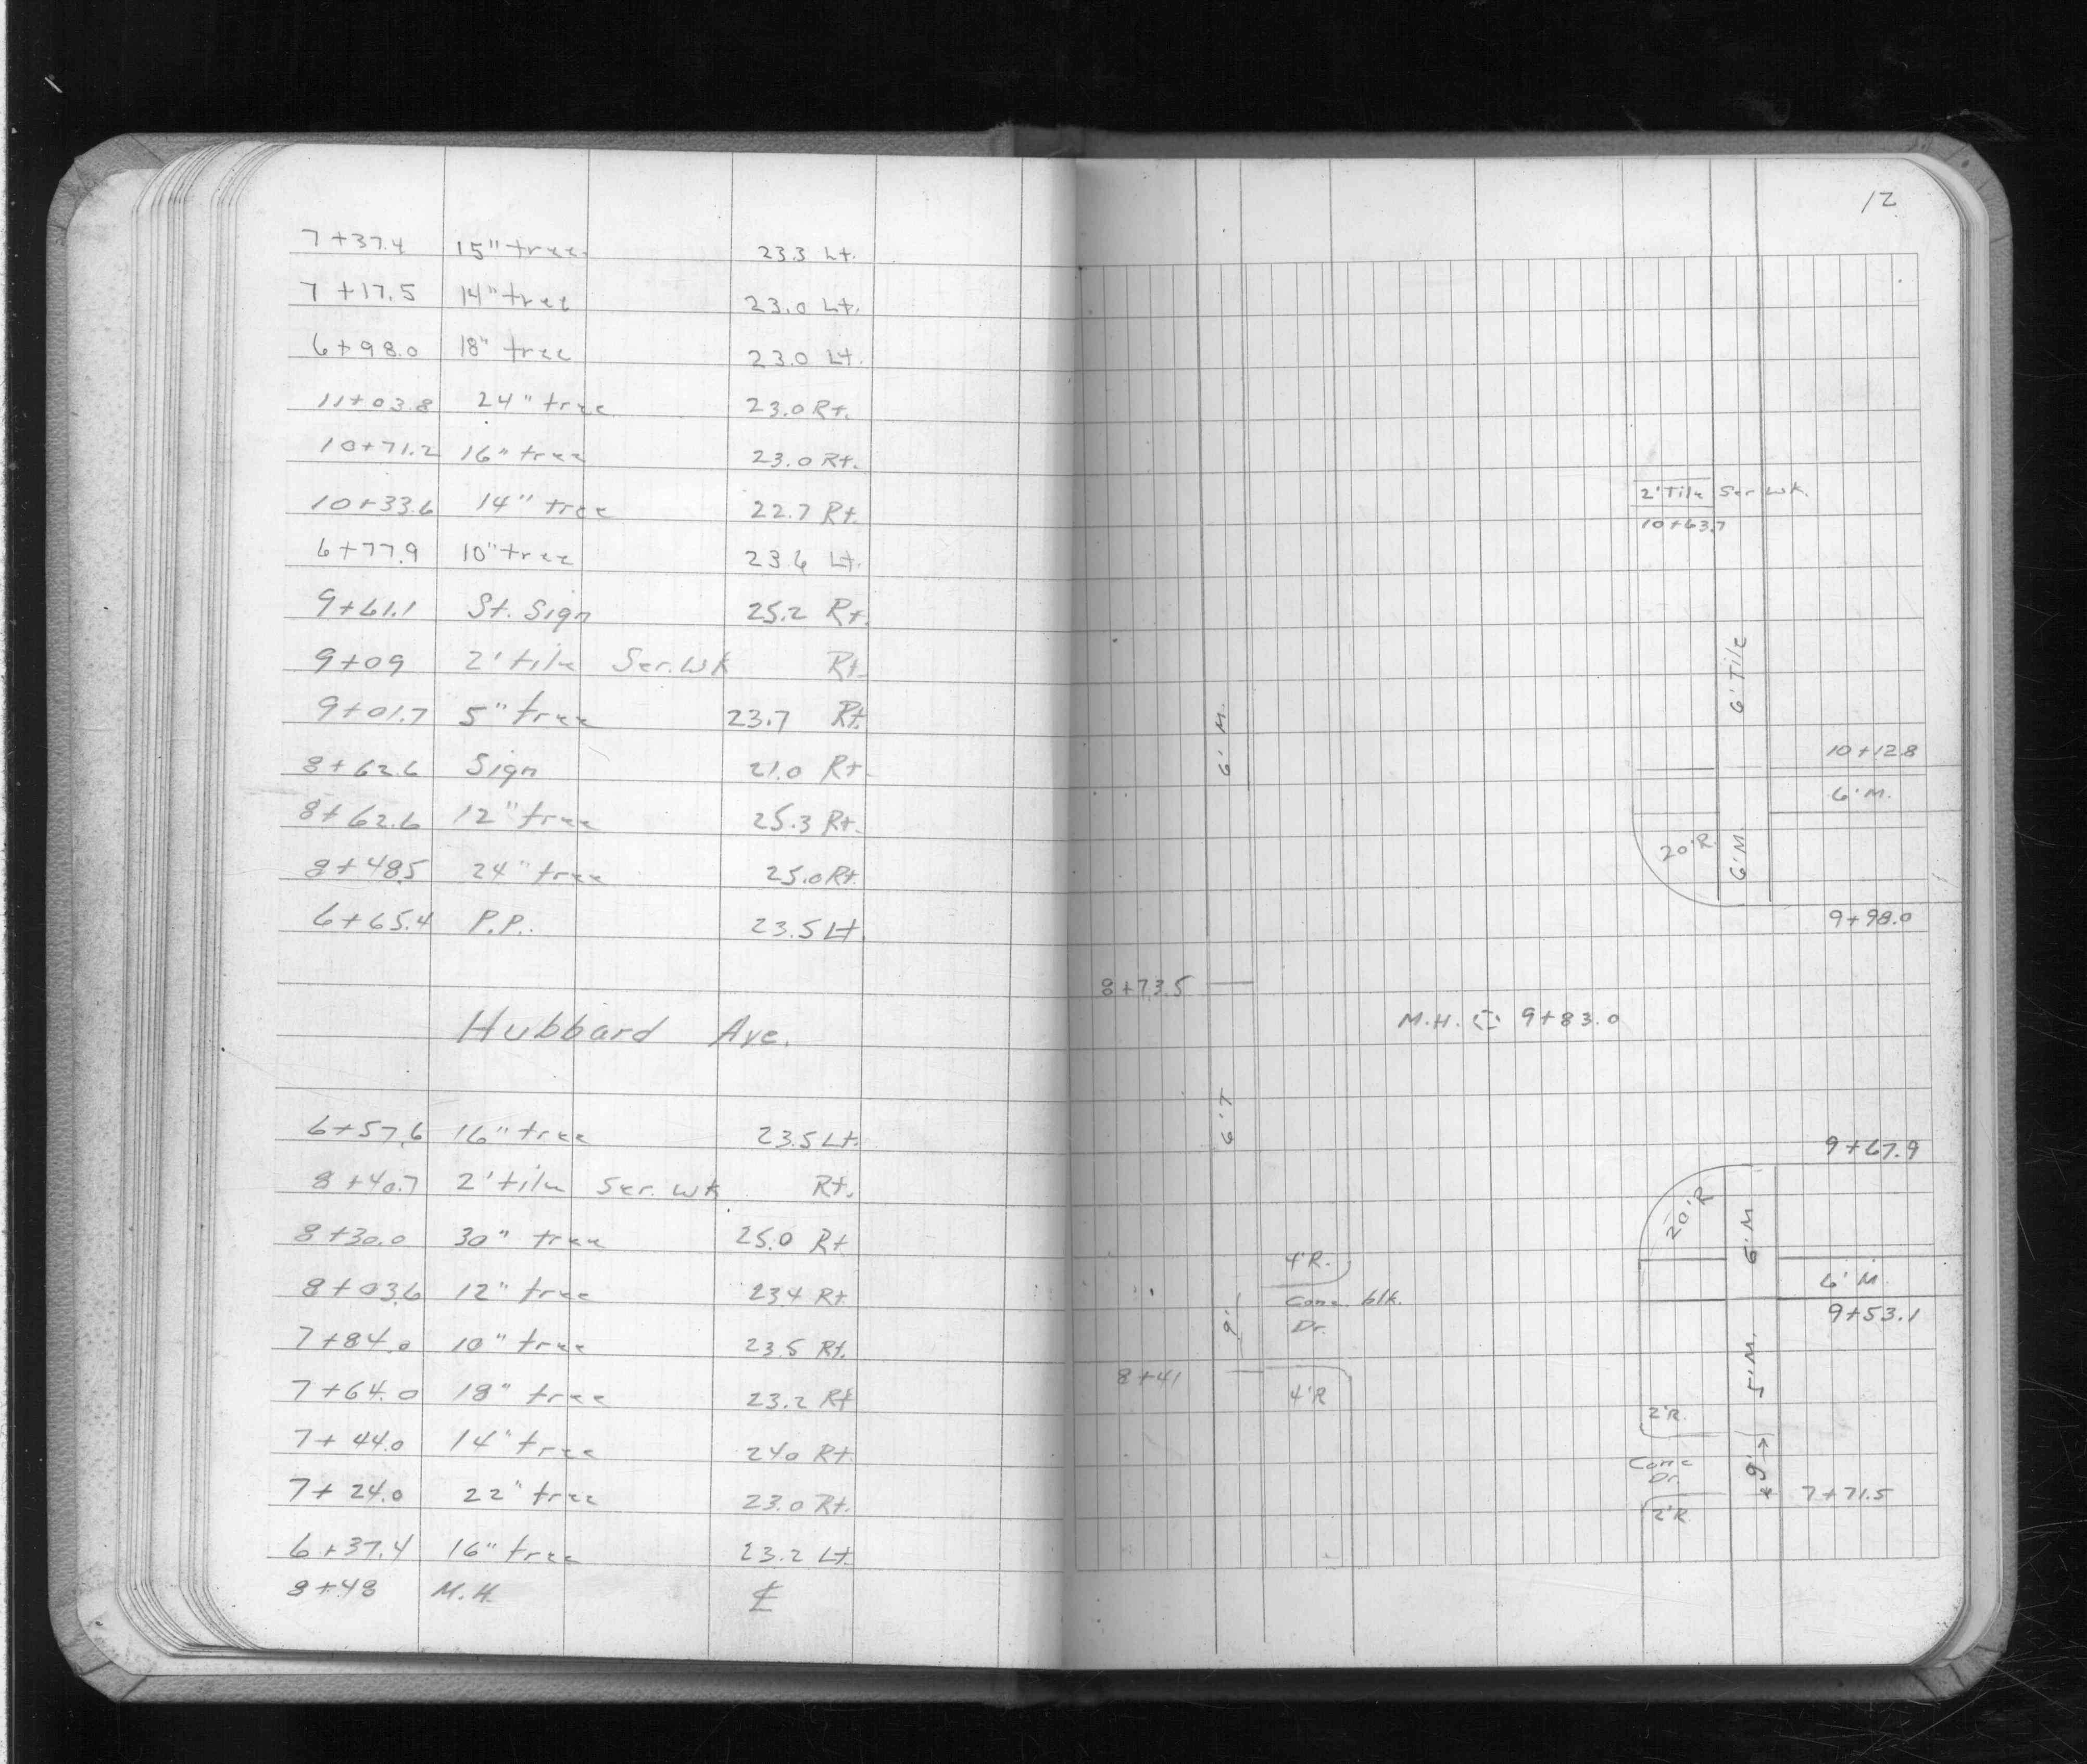 7+37.4 15" tree 23.3 Lt.
7+17.5 14" tree 23.0 Lt.
6+98.0 18" tree 23.0 Lt.
11+03.8 24" tree 23.0 Rt.
10+71.2 16" tree 23.0 Rt.
10+33.6 14" tree 22.7 Rt.
6+77.9 10" tree 23.6 Lt.
9+61.1 St. Sign 25.2 Rt.
9+09 2' tile Ser. Wk Rt.
9+01.7 5" tree 23.7 Rt.
8+62.6 Sign 21.0 Rt.
8+62.6 12" tree 25.3 Rt.
8+48.5 24" tree 25.0 Rt.
6+65.4 P.P. 23.5 Lt.
Hubbard Ave.
6+57.6 16" tree 23.5 Lt.
8+40.7 2' tile Ser. Wk Rt.
8+30.0 30" tree 25.0 Rt.
8+03.6 12" tree 23.4 Rt.
7+84.0 10" tree 23.5 Rt.
7+64.0 18" tree 23.2 Rt
7+44.0 14" tree 24.0 Rt.
7+24.0 22" tree 23.0 Rt.
6+37.4 16" tree 23.2 Lt.
8+48 M.H. ℄
12
2' Tile Ser. Wk.
10+63.7
6' Tile
6' M.
10+12.8
6' M.
20' R.
6' M.
9+98.0
8+73.5
M.H. 9+83.0
6' T
9+67.9
20' R
6' M
6' M
9+53.1
4' R.
Conc. blk.
Dr.
9'
8+41
4' R
5' M.
2' R.
Conc
Dr.
9'
7+71.5
2' R